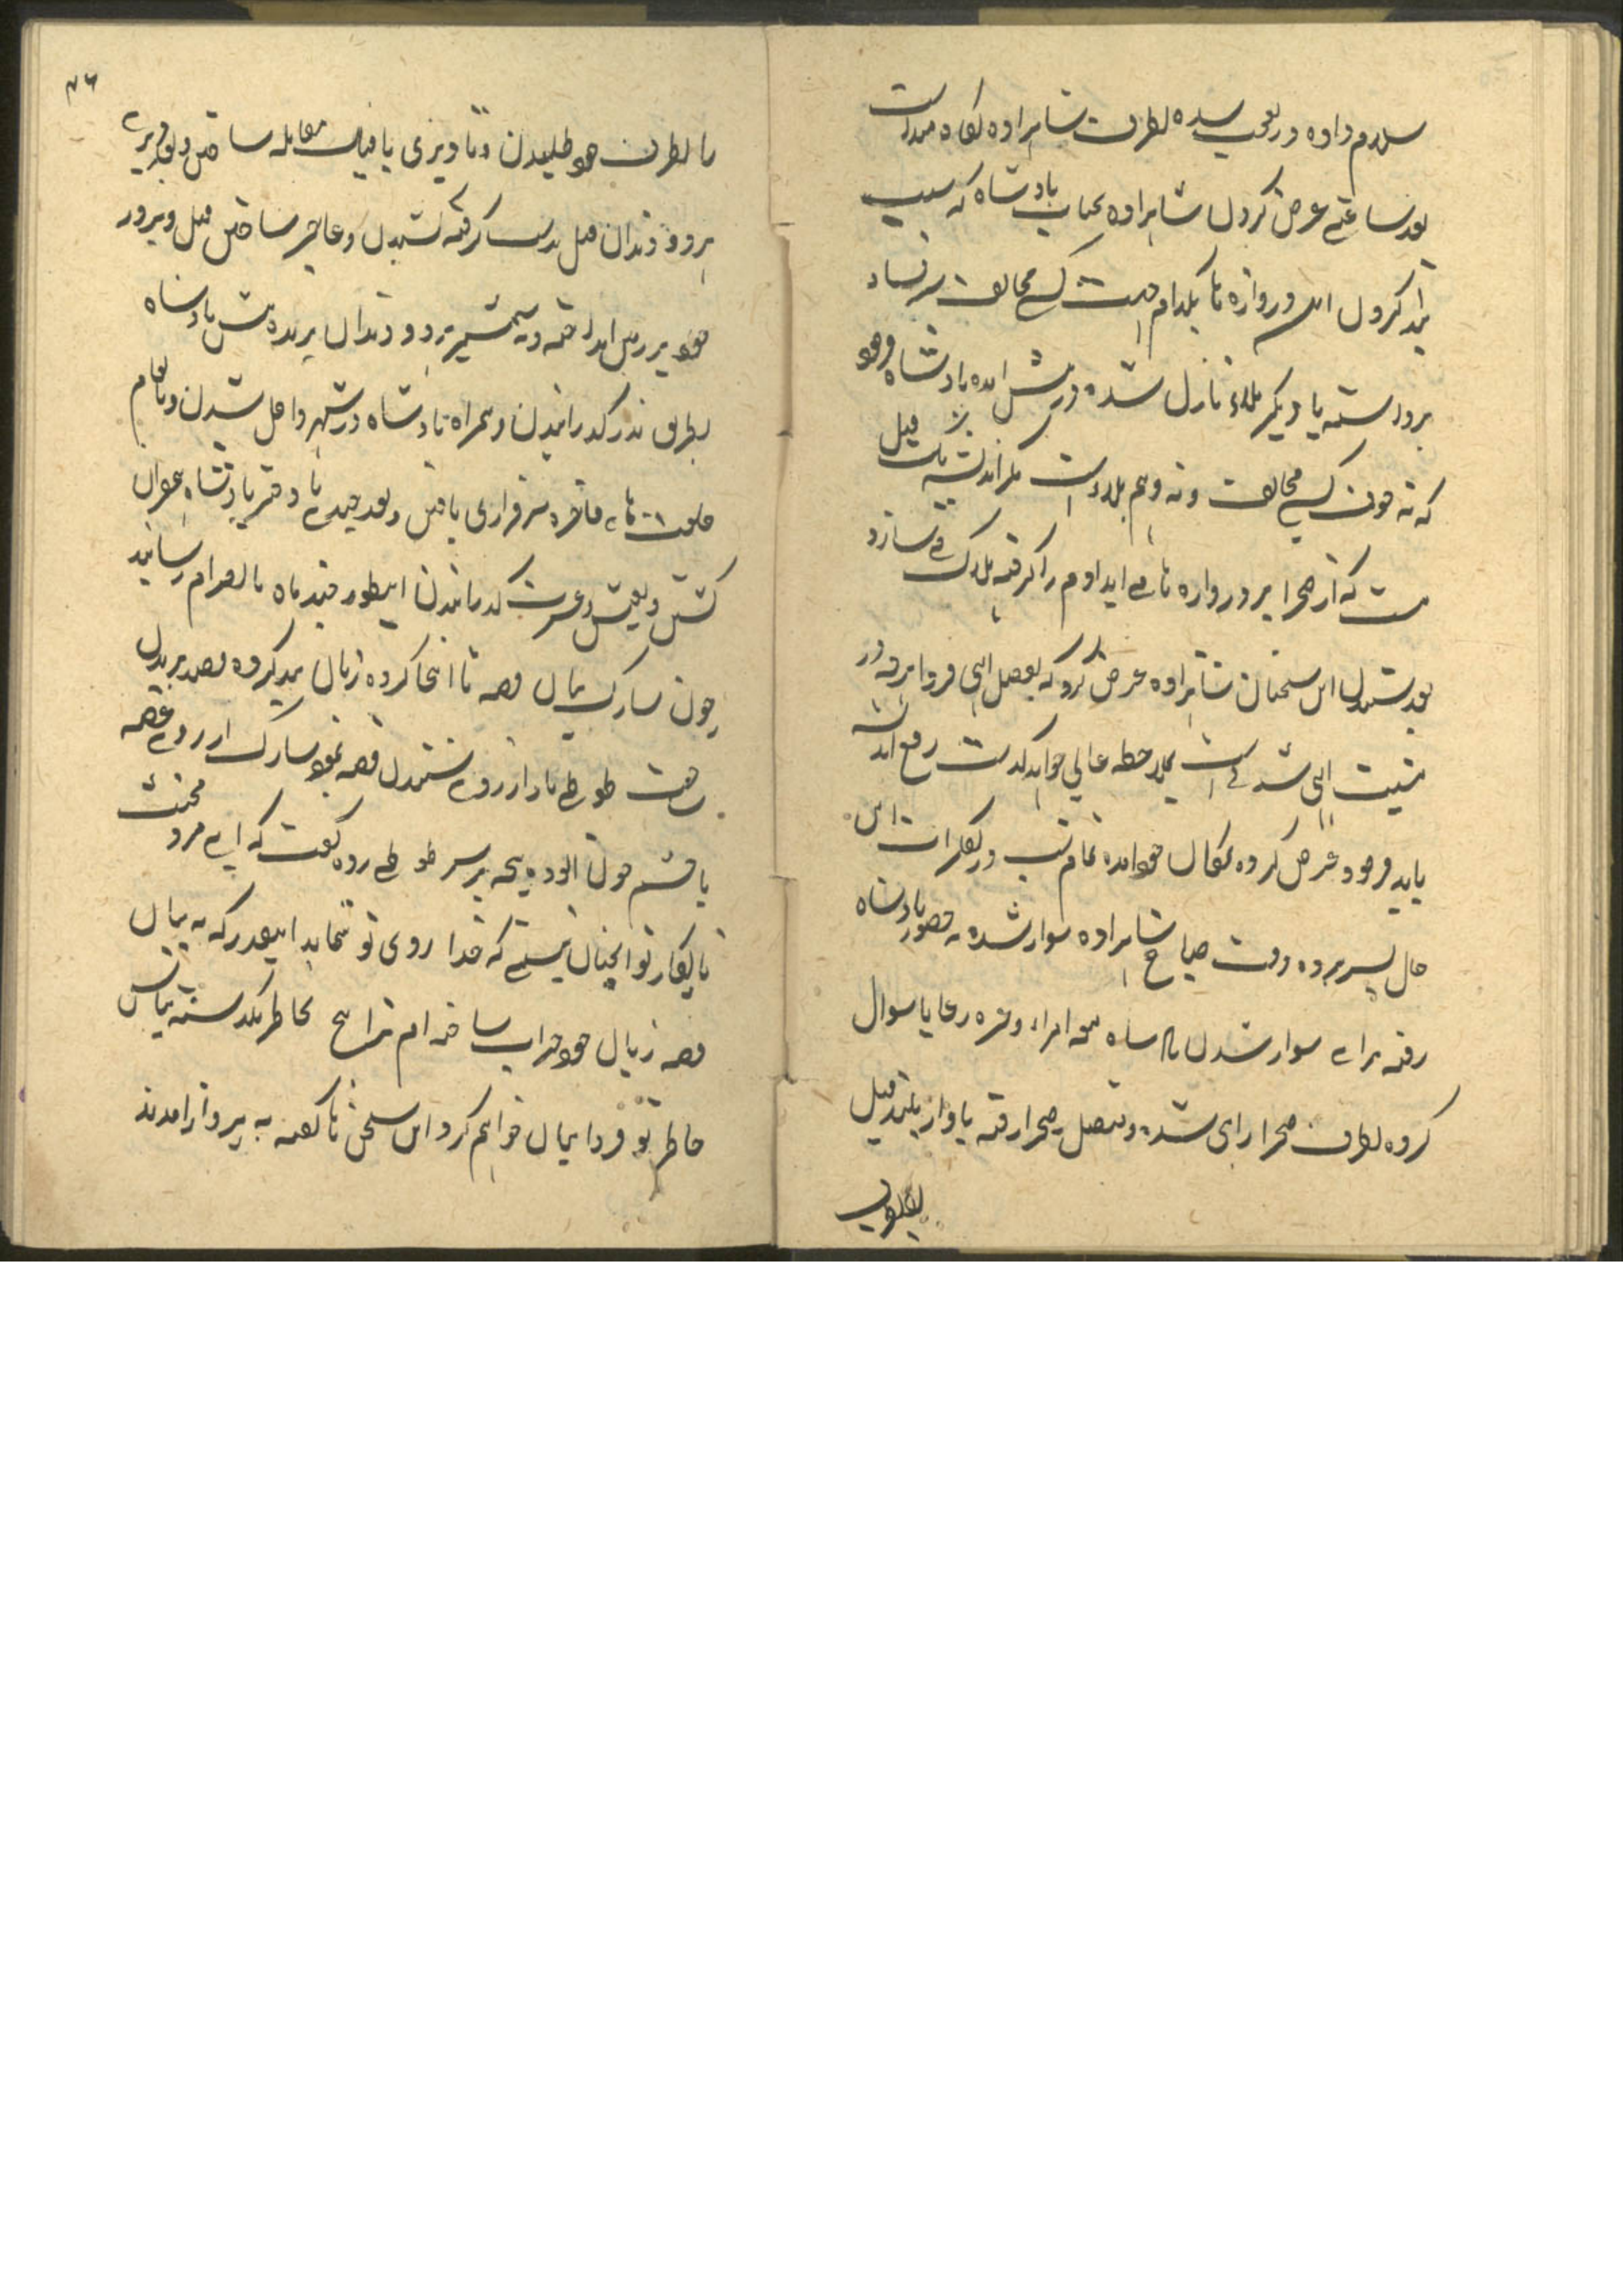 سلام داده در تعجب شده بطرف شاهزاده نگاه میداشت
بعد ساعتے عرض کردن شاهزاده بجناب پادشاه که سبب
بند کردن این دروازه تا بکدام جهت کسے مخالف سر فساد
برداشته یا دیگر بلاے نازل شده درپیش آمده پادشاه فرمود
که نه خوف کسے مخالف و نه وهم بلا است مگر اندیشه یک فیل
مست که از صحرا بر دروازه تا مے آید آدم را گرفته هلاک مے سازد
بعد شنیدن این سخنان شاهزاده عرض کرد که بفضل الهی فردا هرچه در
مشیت الهی شدنے است بملاحظه عالی خواهد گذشت رفع اندیشه
باید فرمود عرض کرده بمکان خود آمده تمام شب در تفکرات این
حال بسر برده وقت صباح شاهزاده سوار شده به حضور پادشاه
رفته براے سوار شدن پادشاه همه امراء وغیره رعایا سوال
کرده بطرف صحرا راهی شده و متصل صحرا رفته باواز بلند فیل
۴۶
را بطرف خود طلبیدن و تا دیری با فیل مقابله ساختن و بعد دیرے
هر دو دندان فیل بدست گرفته کشیدن و عاجز ساختن فیل و بزور
خود بر زمین انداخته و به شمشیر هر دو دندان بریده پیش پادشاه
بطریق نذر گذرانیدن و همراه پادشاه در شهر داخل شدن و بانعام
خلعت هاے فاخره سرفرازی یافتن و بعد چندے با دختر پادشاه همخوان
گشتن و بعیش و عشرت گذرانیدن اینطور چند ماه بالصرام رسانید
چون سارک بیان قصه تا اینجا کرده زبان بند کرده قصد پریدن
ساخت طوطے باز از روے شنیدن قصه نمود سارک از روے غصه
با چشم خون آلوده پنجه بر سر طوطے زده گفت که اے مرد محنث
نابکار تو انچنان نیستے که خدا روی تو نماید اینقدر که به بیان
قصه زبان خود خراب ساخته ام ترا هیچ بخاطر نگذشته بپاس
خاطر تو فردا بیان خواهم کرد این سخن تا گفته به پرواز آمدند